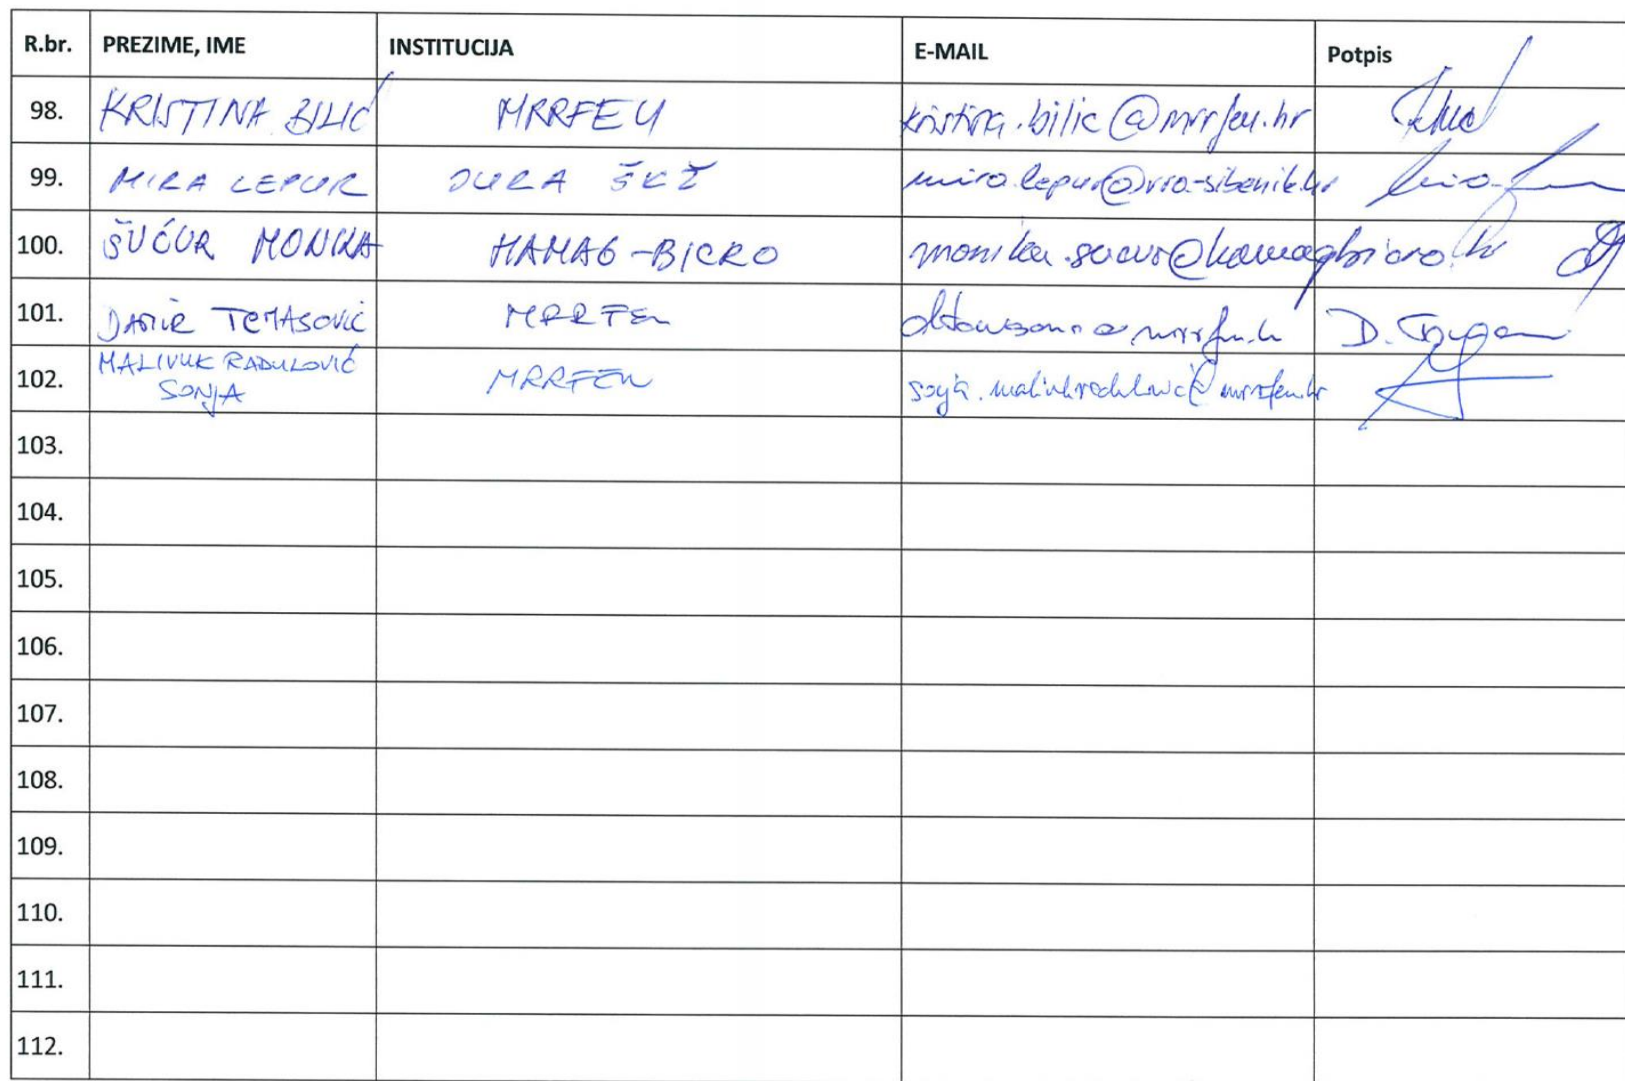 R.br. PREZIME, IME INSTITUCIJA E-MAIL Potpis
98. KRISTINA BILIĆ MRRFEU kristina.bilic@mrrfeu.hr
99. MIRA LEPUR JURA ŠKŽ mira.lepur@rra-sibenik.hr
100. ŠUĆUR MONIKA HAMAG-BICRO monika.sucur@hamagbicro.hr
101. DAMIR TOMASOVIĆ MRRFEU
102. MALIVUK RADULOVIĆ
SONJA MRRFEU
103.
104.
105.
106.
107.
108.
109.
110.
111.
112.